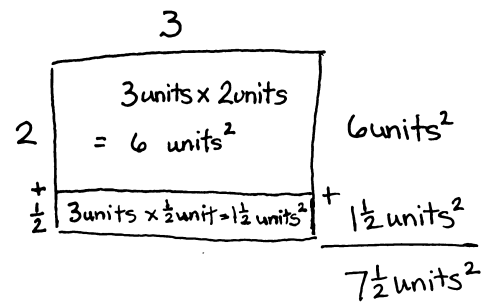 3
2
3units x 2units
= 6 units²
+
½
3units x ½unit=1½ units²
6units²
+
1½units²
7½units²